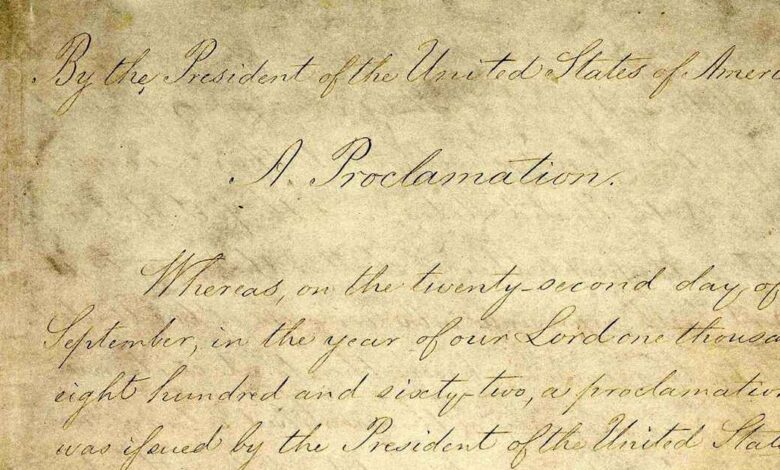 By the President of the United States of Ameri
A Proclamation.
Whereas, on the twenty-second day of
September, in the year of our Lord one thousa
eight hundred and sixty-two, a proclamation
was issued by the President of the United Sta